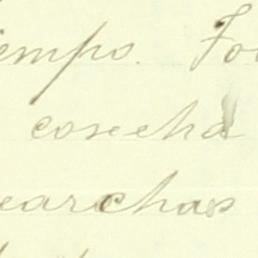 empo. To
cosecha
earchas